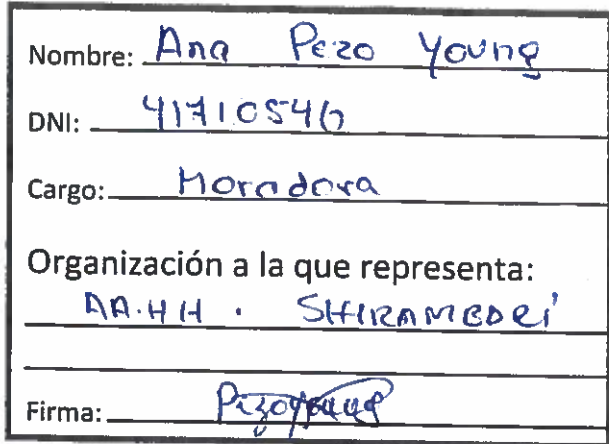 Nombre: Ana Pezo Young
DNI: 41710546
Cargo: Moradora
Organización a la que representa:
AA.HH. SHIRAMBARI
Firma: Pezo Young